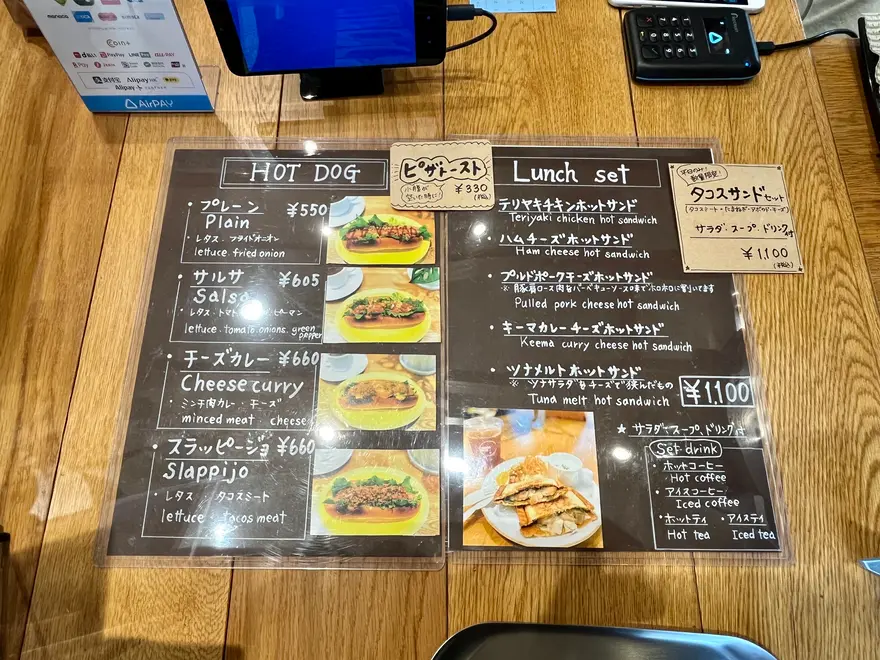 Coin+
d払い PayPay LINE Pay au PAY
R Pay J-Coin
支付宝 Alipay HK
Alipay+
AirPAY
HOT DOG
プレーン ¥550
Plain
レタス・フライドオニオン
lettuce fried onion
サルサ ¥605
Salsa
lettuce・tomato・onions・green
pepper
チーズカレー ¥660
Cheese curry
ミンチ肉カレー・チーズ
minced meat cheese
スラッピージョ ¥660
Slappijo
レタス・タコスミート
lettuce・tacos meat
ピザトースト
小腹が
空いた時に!
¥330
(税込)
Lunch set
テリヤキチキンホットサンド
Teriyaki chicken hot sandwich
ハムチーズホットサンド
Ham cheese hot sandwich
プルドポークチーズホットサンド
Pulled pork cheese hot sandwich
キーマカレーチーズホットサンド
Keema curry cheese hot sandwich
ツナメルトホットサンド
※ツナサラダをチーズで挟んだもの
Tuna melt hot sandwich
¥1,100
★ サラダ・スープ・ドリンク付
Set drink
・ホットコーヒー
Hot coffee
・アイスコーヒー
Iced coffee
・ホットティ ・アイスティ
Hot tea Iced tea
数量限定!
タコスサンドセット
サラダ・スープ・ドリンク付
¥1,100
(税込)